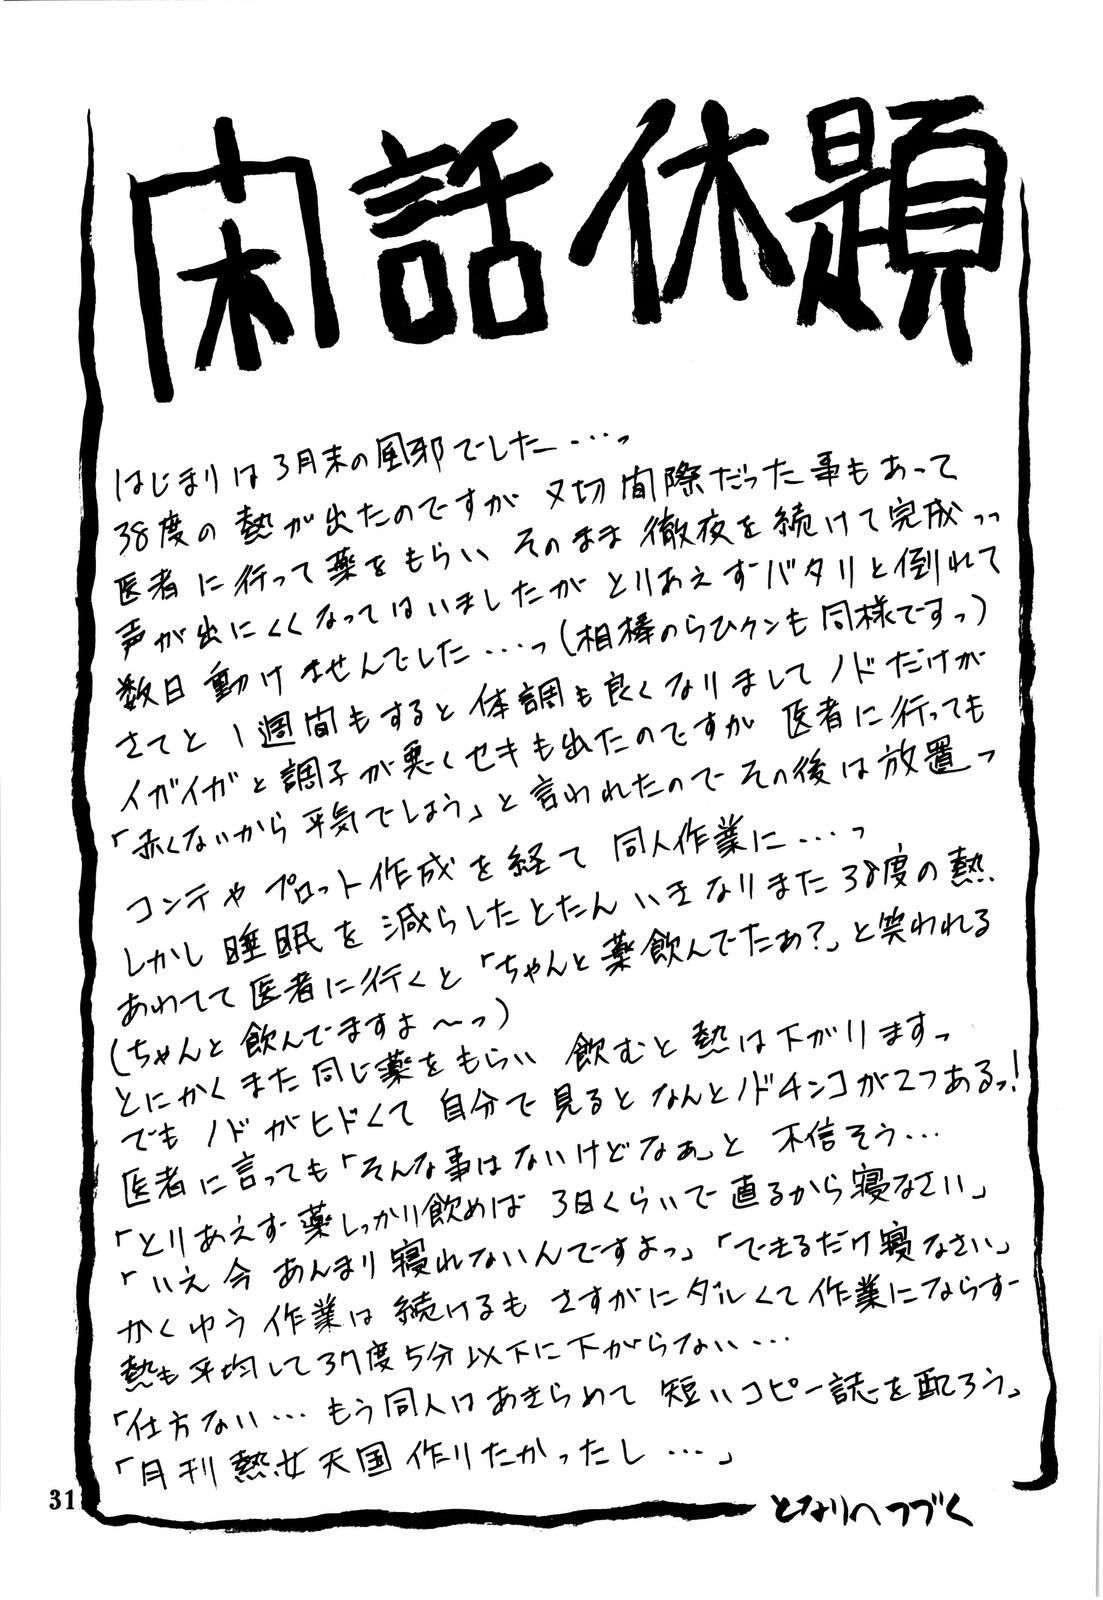 閑話休題
はじまりは3月末の風邪でした…っ
38度の熱が出たのですが 〆切間際だった事もあって
医者に行って薬をもらい そのまま徹夜を続けて完成っっ
声が出にくくなってはいましたが とりあえずバタリと倒れて
数日動けませんでした…っ(相棒のらひクンも同様ですっ)
さてと 1週間もすると体調も良くなりまして ノドだけが
イガイガと調子が悪くセキも出たのですが 医者に行っても
「赤くないから平気でしょう」と言われたので その後は放置っ
コンテやプロット作成を経て 同人作業に…っ
しかし睡眠を減らしたとたん いきなりまた38度の熱
あわてて医者に行くと「ちゃんと薬飲んでたぁ?」と笑われる
(ちゃんと飲んでますよ～っ)
とにかくまた同じ薬をもらい 飲むと熱は下がりますっ
でもノドがヒドくて 自分で見ると なんとノドチンコが2つあるっ!
医者に言っても「そんな事はないけどなぁ」と 不信そう…
「とりあえず薬しっかり飲めば 3日くらいで直るから寝なさい」
「いえ今あんまり寝れないんですよっ」「できるだけ寝なさい」
かくゆう作業は続けるも さすがにダルくて作業にならず
熱も平均して37度5分以下に下がらない…
「仕方ない…もう同人はあきらめて 短いコピー誌を配ろう」
「月刊熱女天国作りたかったし…」
となりへつづく
31